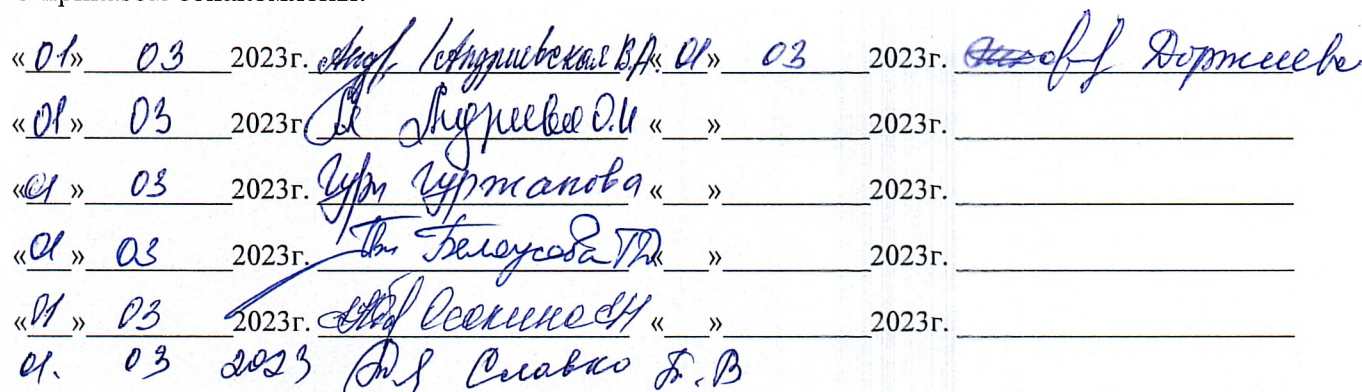 «01» 03 2023г. Андр. /Андриевская В.А. «01» 03 2023г. Доржиева
«01» 03 2023г. Андреева О.И «__» 2023г.
«01» 03 2023г. Гурж Гуржапова «__» 2023г.
«01» 03 2023г. Белоусова «__» 2023г.
«01» 03 2023г. Осокина «__» 2023г.
01. 03 2023 Славко Б.В